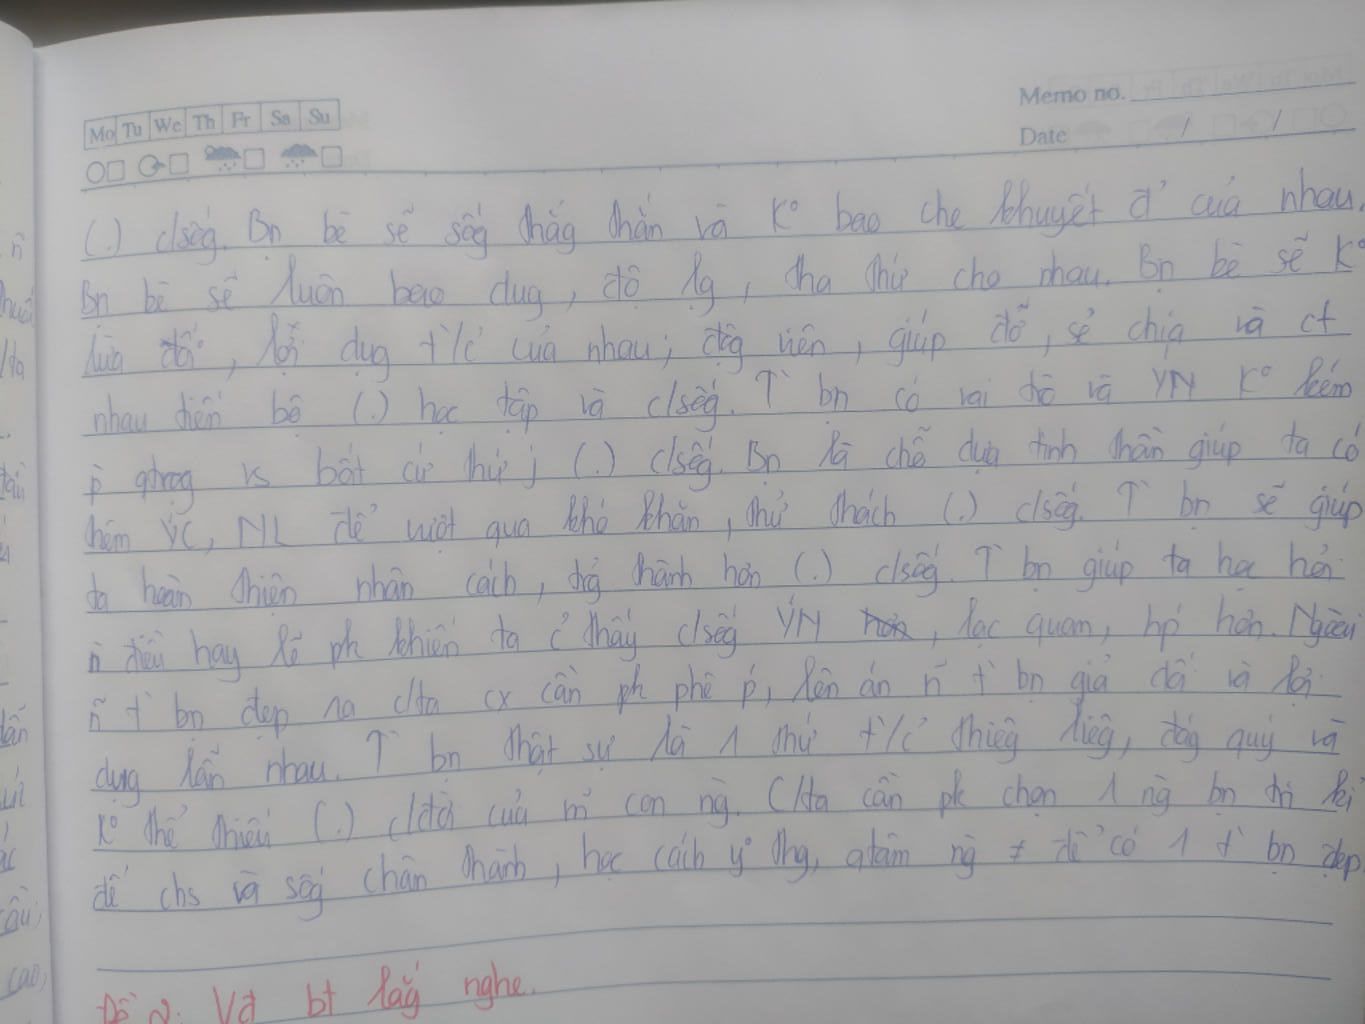 Mo Tu We Th Fr Sa Su
Memo no.
Date / /
(.) c/sốg. Bn bè sẽ sốg thẳg thắn và K° bao che khuyết đ' của nhau.
Bn bè sẽ luôn bao dug, độ lg, tha thứ cho nhau. Bn bè sẽ K°
lừa dối, lợi dụg t'/c' của nhau; độg viên, giúp đỡ, sẻ chia và ct
nhau tiến bộ (.) học tập và c/sốg. T` bn có vai trò và YN K° kém
p qtrọg vs bất cứ thứ j (.) c/sốg. Bn là chỗ dựa tinh thần giúp ta có
thêm YC, NL để vượt qua khó khăn, thử thách (.) c/sốg. T` bn sẽ giúp
ta hoàn thiện nhân cách, trg thành hơn (.) c/sốg. T` bn giúp ta học hỏi
n điều hay lẽ ph khiến ta c' thấy c/sốg YN hơn, lạc quan, hp' hơn. Ngoài
n~ t` bn đẹp ra c/ta cx cần ph phê p', lên án n~ t` bn giả dối và lợi
dụg lẫn nhau. T` bn thật sự là 1 thứ t`/c' thiêg liêg, đág quý và
K° thể thiếu (.) c/đời của m' con ng. C/ta cần pk chọn 1 ng bn tri kỉ
để chs và sốg chân thành, học cách y° thg, qtâm ng ≠ để có 1 t` bn đẹp.
Đề 2: Vđ bt lắg nghe.